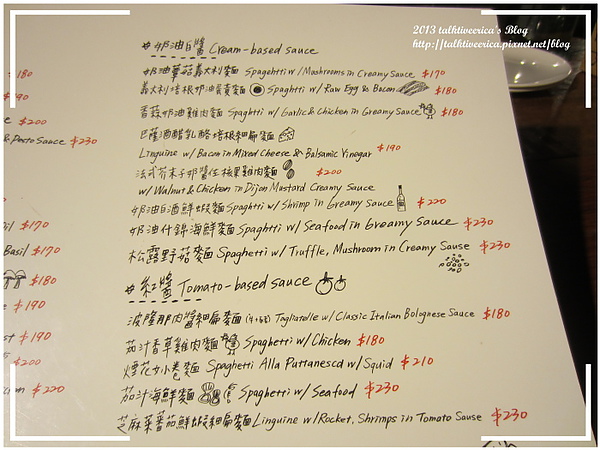 2013 talktiveerica's Blog
http://talktiveerica.pixnet.net/blog
# 奶油白醬 Cream-based sauce
奶油蘑菇義大利麵 Spagehtti w/ Mushrooms in Creamy Sauce $170
義大利培根奶油蛋黃麵 Spaghtti w/ Raw Egg & Bacon $180
香蒜奶油雞肉麵 Spaghtti w/ Garlic & Chicken in Greamy Sauce $180
巴薩酒醋乳酪培根細扁麵
Linguine w/ Bacon in Mixed Cheese & Balsamic Vinegar $190
法式芥末子奶醬佐核果雞肉麵 $200
w/ Walnut & Chicken in Dijon Mustard Creamy Sauce
奶油白酒鮮蝦麵 Spaghtti w/ Shrimp in Greamy Sauce $220
奶油什錦海鮮麵 Spaghtti w/ Seafood in Greamy Sauce $230
松露野菇麵 Spaghetti w/ Truffle, Mushroom in Creamy Sause $230
# 紅醬 Tomato-based sauce
波隆那肉醬細扁麵 Tagliatelle w/ Classic Italian Bolognese Sauce $180
茄汁香草雞肉麵 Spaghetti w/ Chicken $180
煙花女小卷麵 Spaghetti Alla Puttanescd w/ Squid $210
茄汁海鮮麵 Spaghetti w/ Seafood $230
芝麻菜番茄鮮蝦細扁麵 Linguine w/ Rocket, Shrimps in Tomato Sause $230
$180
$200
& Pesto Sauce $230
$170
Basil $170
$180
$190
$190
$200
$220